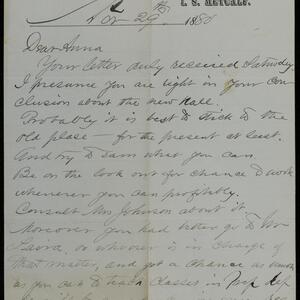 E. S. METCALF.
Nov 29th 1880
Dear Anna
Your letter duly received Saturday.
I presume you are right in your con-
clusion about the new Hall.
Probably it is best to stick to the
old place — for the present at least.
And try to earn what you can
Be on the look out for chance to work
whenever you can profitably.
Consult Mrs Johnson about it.
Moreover you had better go to
or whoever is in charge of
that matter, and get a chance as
as you can to teach classes in Prep dep